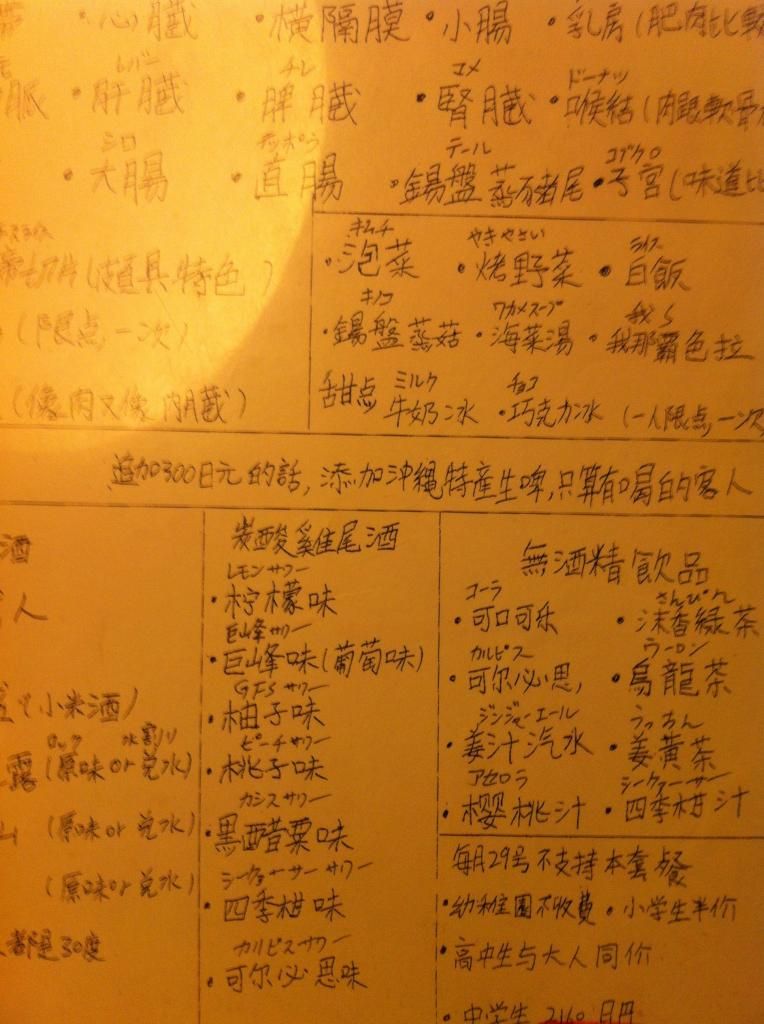 ・心臓 ・横隔膜 ・小腸 ・乳房(肥肉比較
レバー チレ コメ ドーナッツ
・肝臓 ・脾臓 ・腎臓 ・喉結(肉跟軟骨
シロ テッポウ テール コブクロ
・大腸 ・直腸 ・錫盤蒸豬尾 ・子宮(味道比
キムチ やきやさい ライス
・泡菜 ・烤野菜 ・白飯
切片(頗具特色)
キノコ ワカメスープ
・錫盤蒸菇 ・海菜湯 ・我那覇色拉
(限点一次)
ミルク チョコ
甜点 牛奶冰 ・巧克力冰 (一人限点一次
(像肉又像内臓)
追加300日元的話,添加沖縄特產生啤,只算有喝的客人
酒
人
(小米酒)
ロック 水割り
露(原味or兌水)
山 (原味or兌水)
(原味or兌水)
都是30度
炭酸雞尾酒
レモンサワー
・柠檬味
巨峰サワー
・巨峰味(葡萄味)
GFSサワー
・柚子味
ピーチサワー
・桃子味
カシスサワー
・黒醋栗味
シークヮーサーサワー
・四季柑味
カルピスサワー
・可尔必思味
無酒精飲品
コーラ さんぴん
・可口可乐 ・沫香緑茶
カルピス ウーロン
・可尔必思, ・烏龍茶
ジンジャーエール うっちん
・姜汁汽水 ・姜黄茶
アセロラ シークァーサー
・櫻桃汁 ・四季柑汁
每月29号不支持本套餐
・幼稚園不收費 ・小学生半价
・高中生与大人同价
・中学生 2160日円